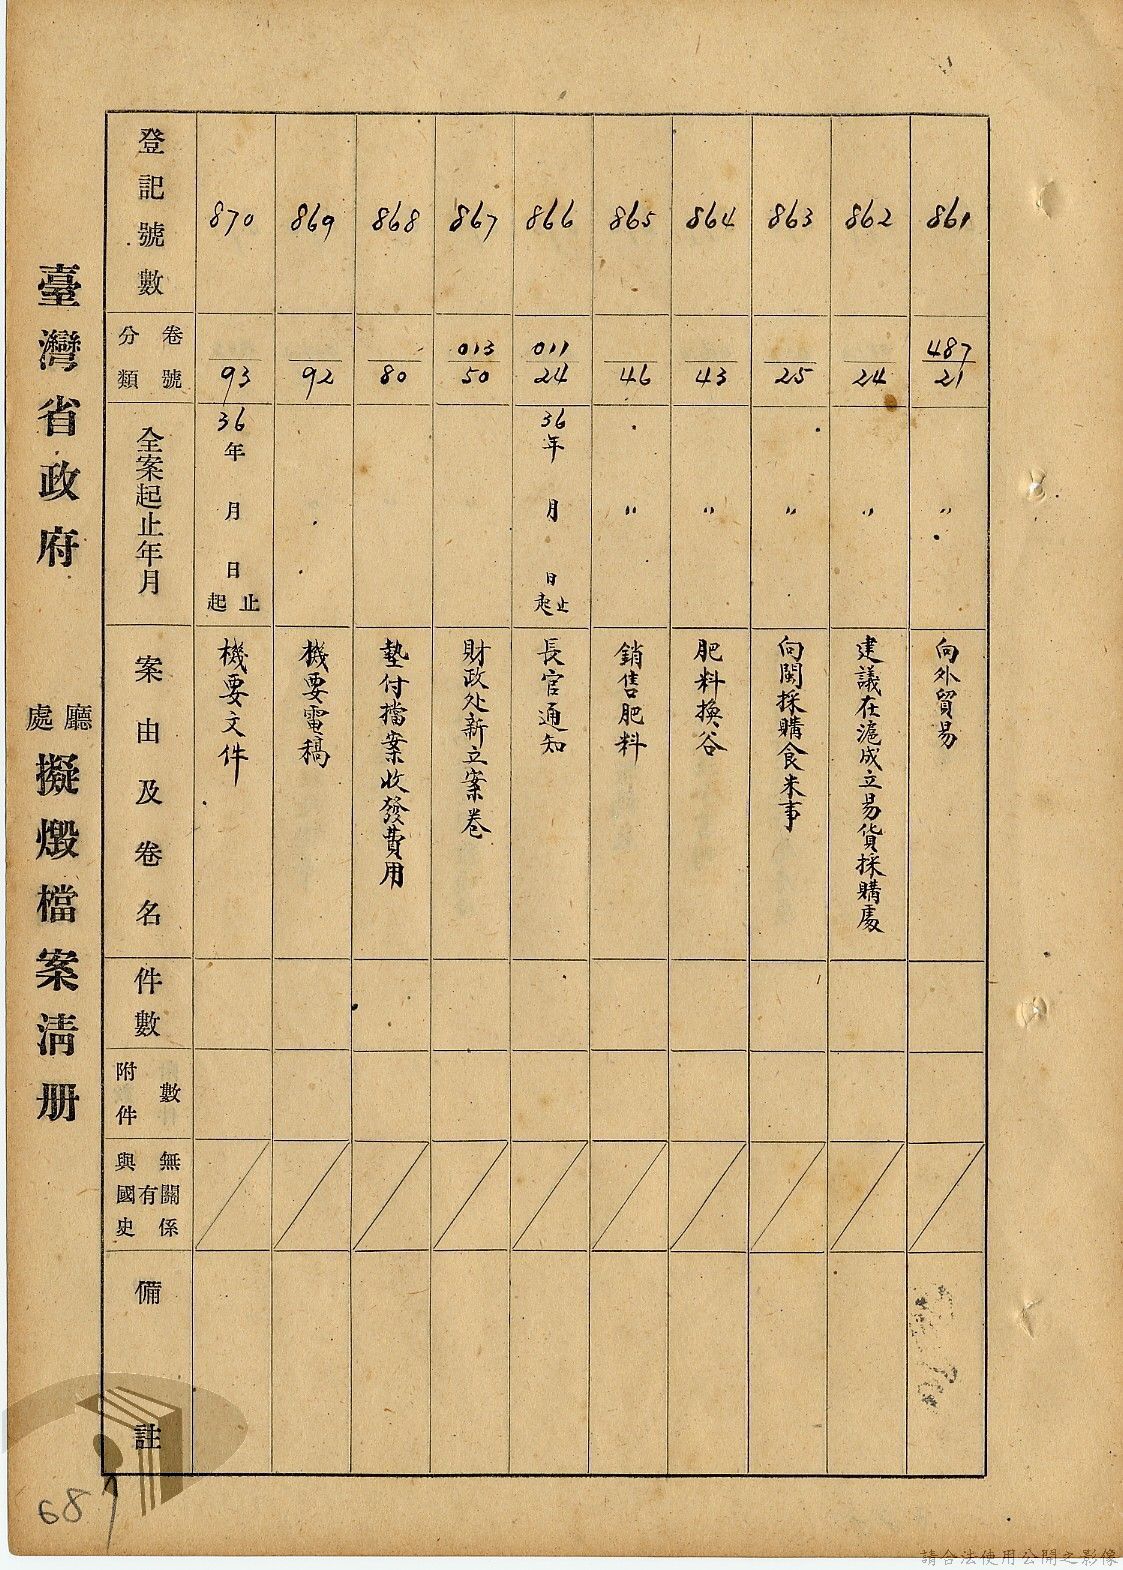 臺灣省政府
廳處
擬燬檔案清册
登記號數
分類 卷號
全案起止年月
案由及卷名
件數
附件數
與國史有無關係
備註
870
93
36年 月 日起止
機要文件
869
92
機要電稿
868
80
墊付檔案收發費用
867
013
50
財政处新立案卷
866
011
24
36年 月 日起止
長官通知
865
46
〃
銷售肥料
864
43
〃
肥料換谷
863
25
〃
向閩採購食米事
862
24
〃
建議在滬成立易貨採購處
861
487
21
〃
向外貿易
687
請合法使用公開之影像